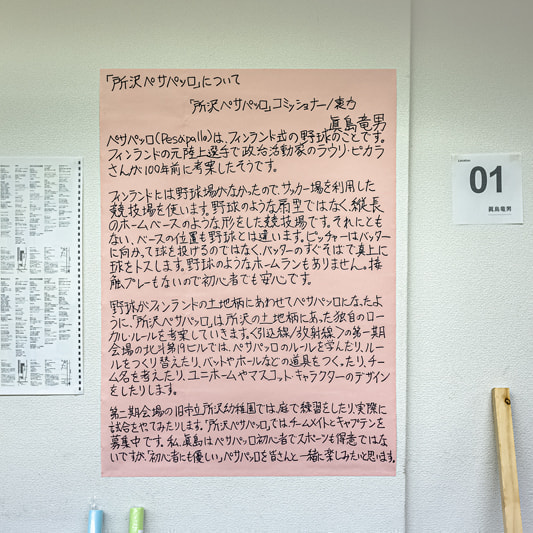 「所沢ペサパッロ」について
「所沢ペサパッロ」コミッショナー/表力
眞島竜男
ペサパッロ(Pesäpallo)は、フィンランド式の野球のことです。
フィンランドの元陸上選手で政治活動家のラウリ・ピカラ
さんが100年前に考案したそうです。
フィンランドには野球場がなかったので、サッカー場を利用した
競技場を使います。野球のような扇型ではなく、縦長
のホームベースのような形をした競技場です。それにとも
ない、ベースの位置も野球とは違います。ピッチャーはバッター
に向かって球を投げるのではなく、バッターのすぐそばで真上に
球をトスします。野球のようなホームランもありません。接
触プレーもないので初心者でも安心です。
野球がフィンランドの土地柄にあわせてペサパッロになったよ
うに、「所沢ペサパッロ」は所沢の土地柄にあった独自のロー
カル・ルールを考案していきます。〈引込線/放射線〉の第一期
会場の北斗第19ビルでは、ペサパッロのルールを学んだり、ルー
ルをつくり替えたり、バットやボールなどの道具をつくったり、チー
ム名を考えたり、ユニホームやマスコット・キャラクターのデザイン
をしたりします。
第二期会場の旧市立所沢幼稚園では、庭で練習をしたり、実際に
試合をやってみたりします。「所沢ペサパッロ」では、チームメイトとキャプテンを
募集中です。私、眞島はペサパッロ初心者でスポーツも得意ではな
いですが、「初心者にも優しい」ペサパッロを皆さんと一緒に楽しみたいと思います。
Location
01
眞島竜男